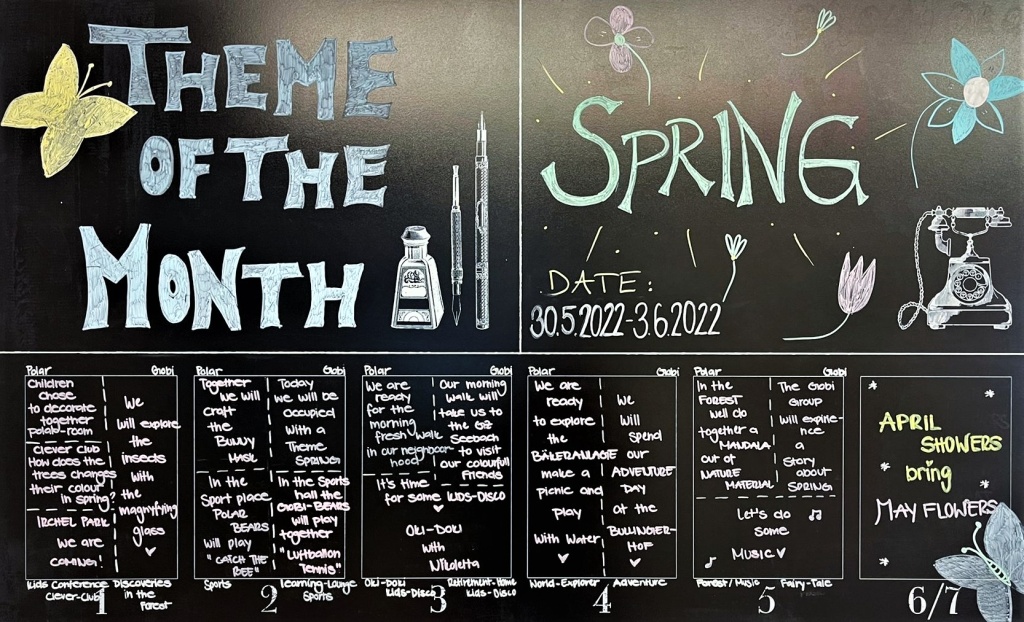 THEME
OF THE
MONTH
SPRING
DATE:
30.5.2022-3.6.2022
Polar
Children
chose
to decorate
together
Polar-room
Clever club
How does the
trees changes
their colour
in spring?
IRCHEL PARK
We are
COMING!
Gobi
We
will explore
the
insects
with
the
magnifying
glass
Kids Conference
Clever-Club
Discoveries
in the
Forest
1
Together
we will
craft
the
BUNNY
MASK
In the
Sport place
POLAR
BEARS
will play
"CATCH THE
BEE"
Today
we will be
occupied
with a
Theme
SPRING
In the Sports
hall the
GOBI-BEARS
will play
together
"Luftballon
Tennis"
Sports
learning-Lounge
Sports
2
Polar
We are
ready
for the
morning
fresh walk
in our neighbour-
hood
Gobi
Our morning
walk will
take us to
the GZ
Seebach
to visit
our colourfull
Friends
It's time
for some KIDS-DISCO
OKI-DOKI
with
Nikoletta
Oki-Doki
Kids-Disco
Retirement-Home
Kids-Disco
3
Polar
We are
ready
to explore
the
BÄKERANLAGE
make a
picnic and
play
with water
Gobi
We
will
spend
our
ADVENTURE
DAY
at the
BULLINGER-
HOF
World-Explorer
Adventure
4
Polar
In the
FOREST
we'll do
together a
MANDALA
out of
NATURE
MATERIAL
Gobi
The Gobi
GROUP
will expirie-
nce
a
Story
about
SPRING
Let's do
some
MUSIC
Forest/Music
Fairy-Tale
5
APRIL
SHOWERS
bring
MAY FLOWERS
6/7